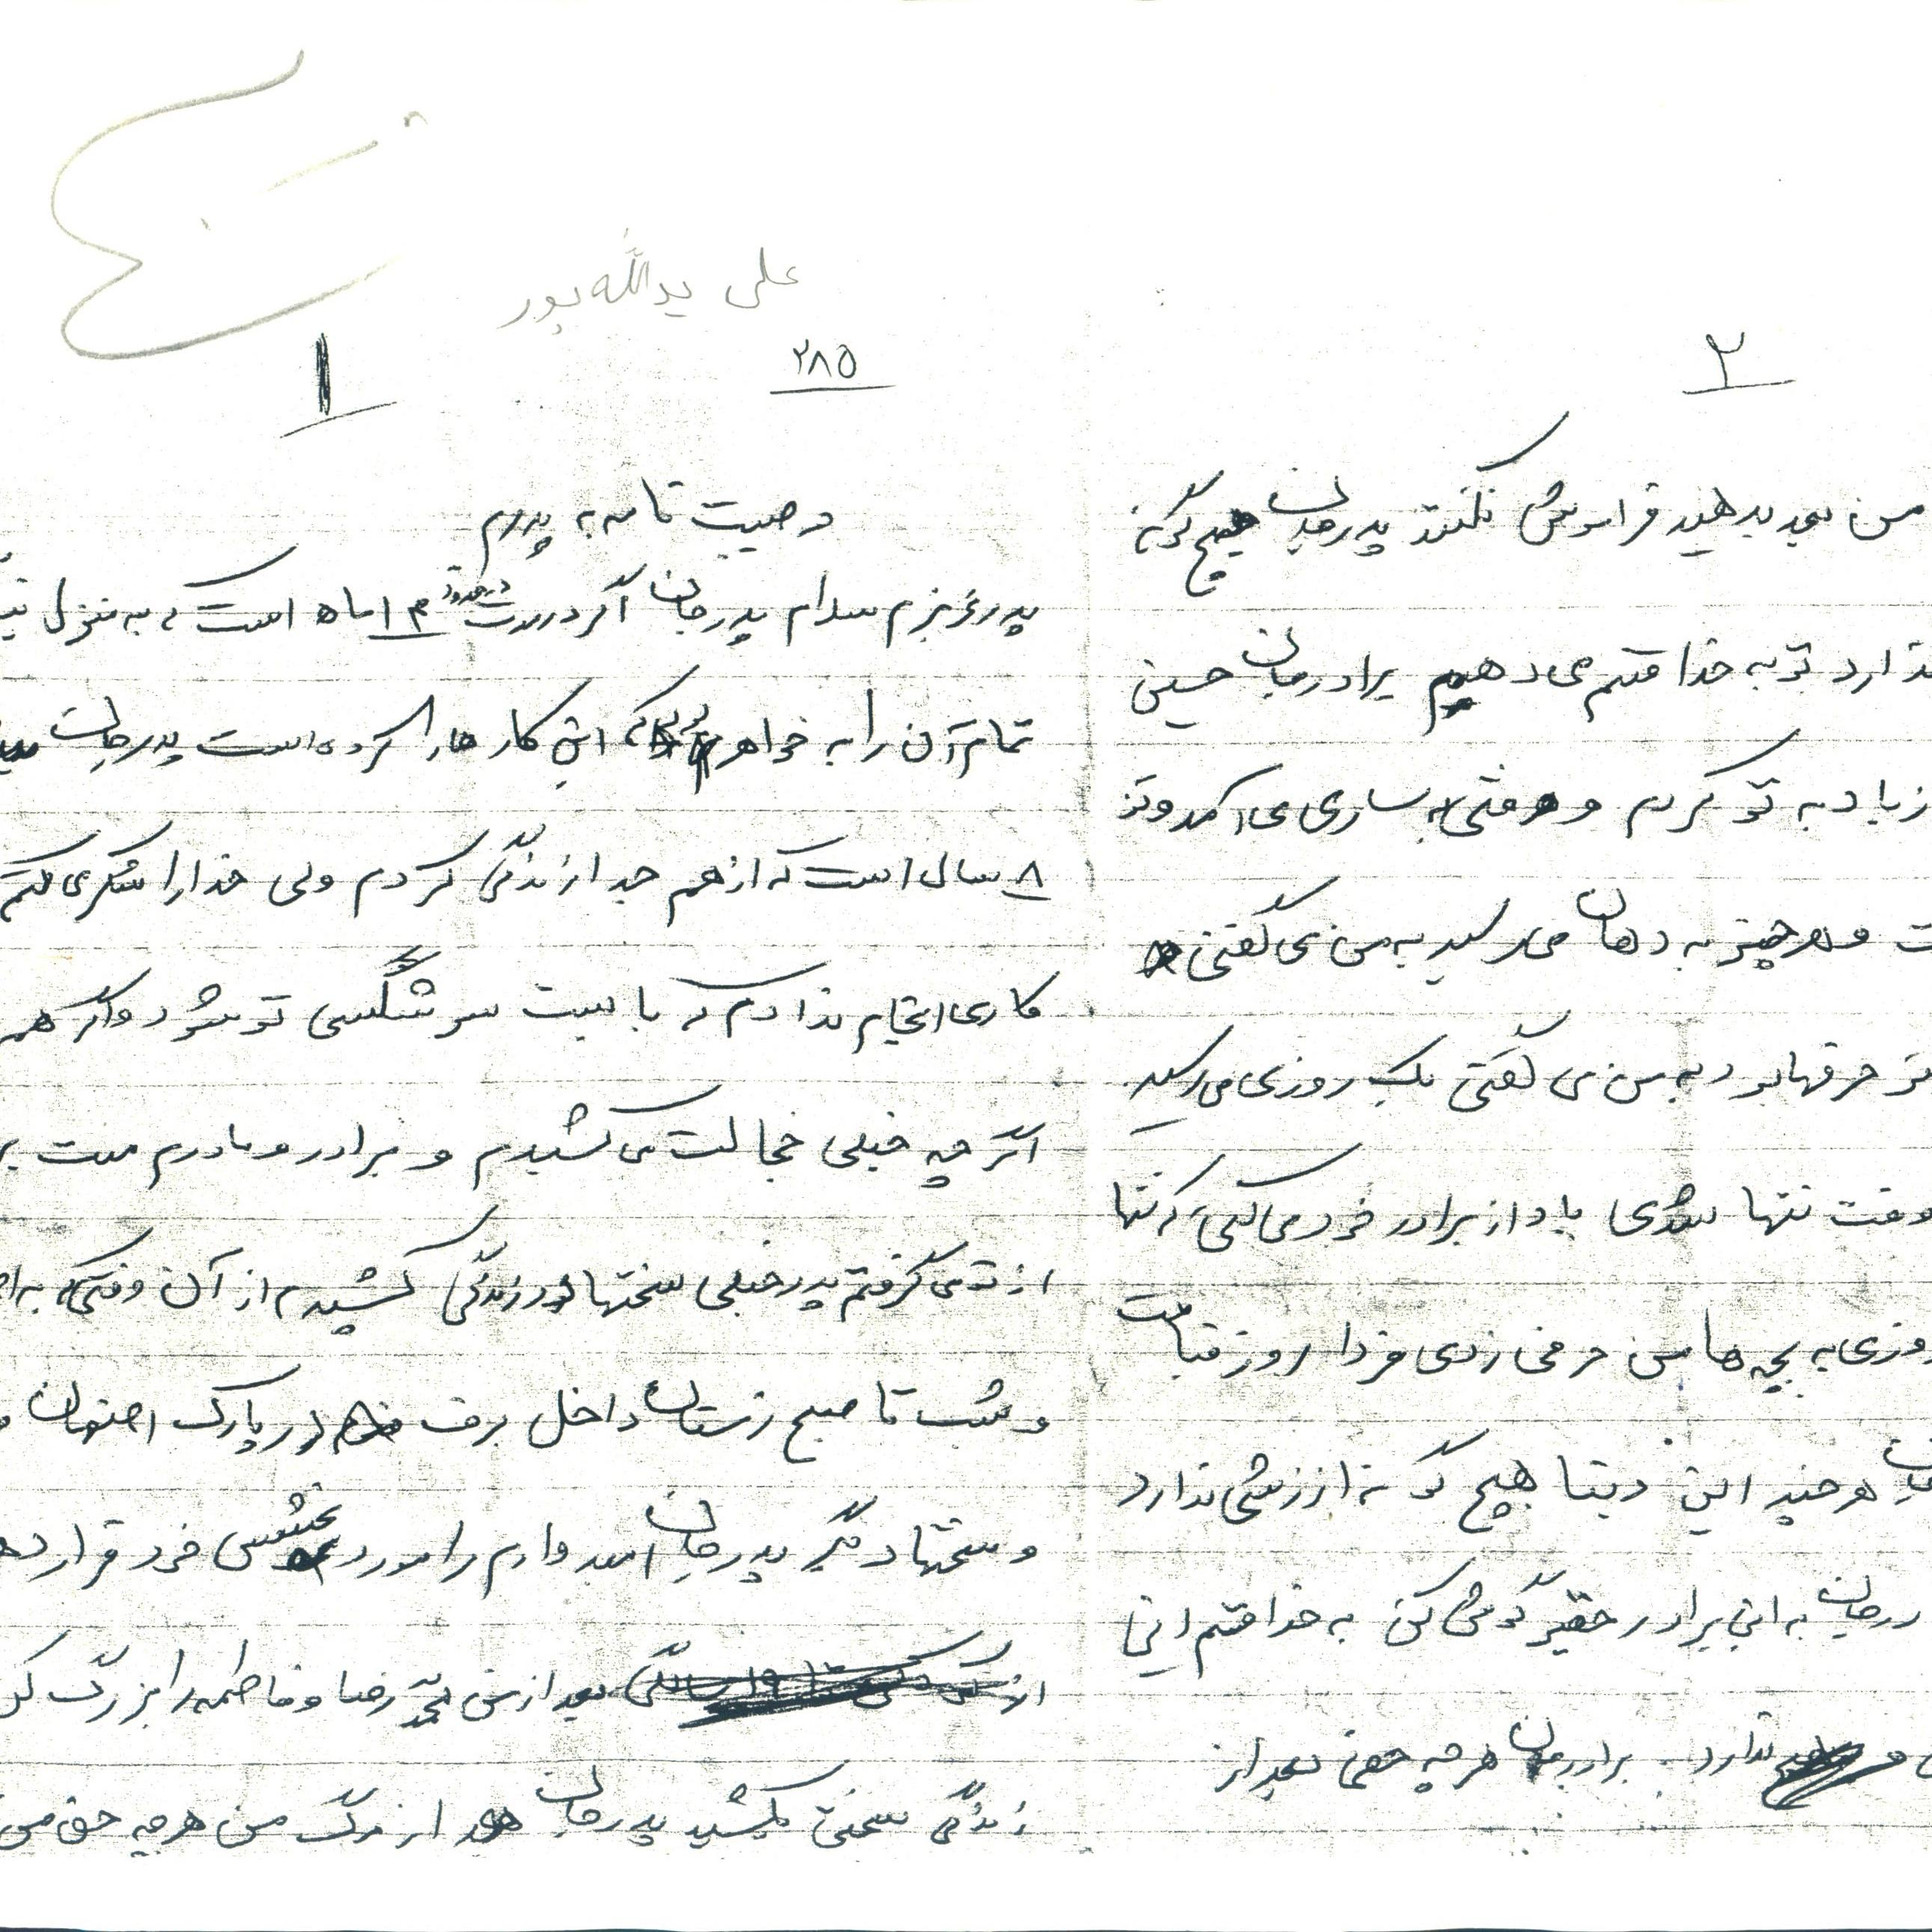 علی یدالله پور
۲۸۵
۱
وصیت نامه به پدرم
پدر عزیزم سلام پدر جان اگر در مدت در حدود ۱۰ ماه است که به منزل
تمام آن را به خواهر که این کار ها را کرده است پدر جان
۸ سال است که از هم جدا زندگی کردم ولی خدا را شکر می کنم
کاری انجام ندادم که باعث سر شگستی تو شود و اگر هم
اگر چه خیلی خجالت می کشیدم و برادر و مادرم
از تو می گرفتم پدر خیلی سختها در زندگی کشیدم از آن وقتی که
و شب تا صبح زمستان داخل برف در پارک اصفهان
و سختها دیگر پدر جان امیدوارم را مورد بخشش خود قرار
بعد از من بچه رضا و فاطمه را بزرگ
زندگی سختی بکشید پدر جان بعد از مرگ من هر چه حق من
۲
من بود بدهید فراموش نکنید پدر جان هیچ گونه
ندارد تو به خدا قسم می دهم برادر جان حسین
زیاد به تو کردم و وقتی به ساری می آمد و تو
و هر چیز به دهان می رسید به من می گفتی
حرفها بود به من می گفتی یک روزی می رسد
وقت تنها شدی یاد از برادر خود می کنی که تنها
روزی به بچه ها من حرفی زدی فردا روز قیامت
هر چند این دنیا هیچ گونه ارزشی ندارد
به این برادر حقیر گوش کن به خدا قسم این
و ندارد برادر جان هر چه حق بعد از